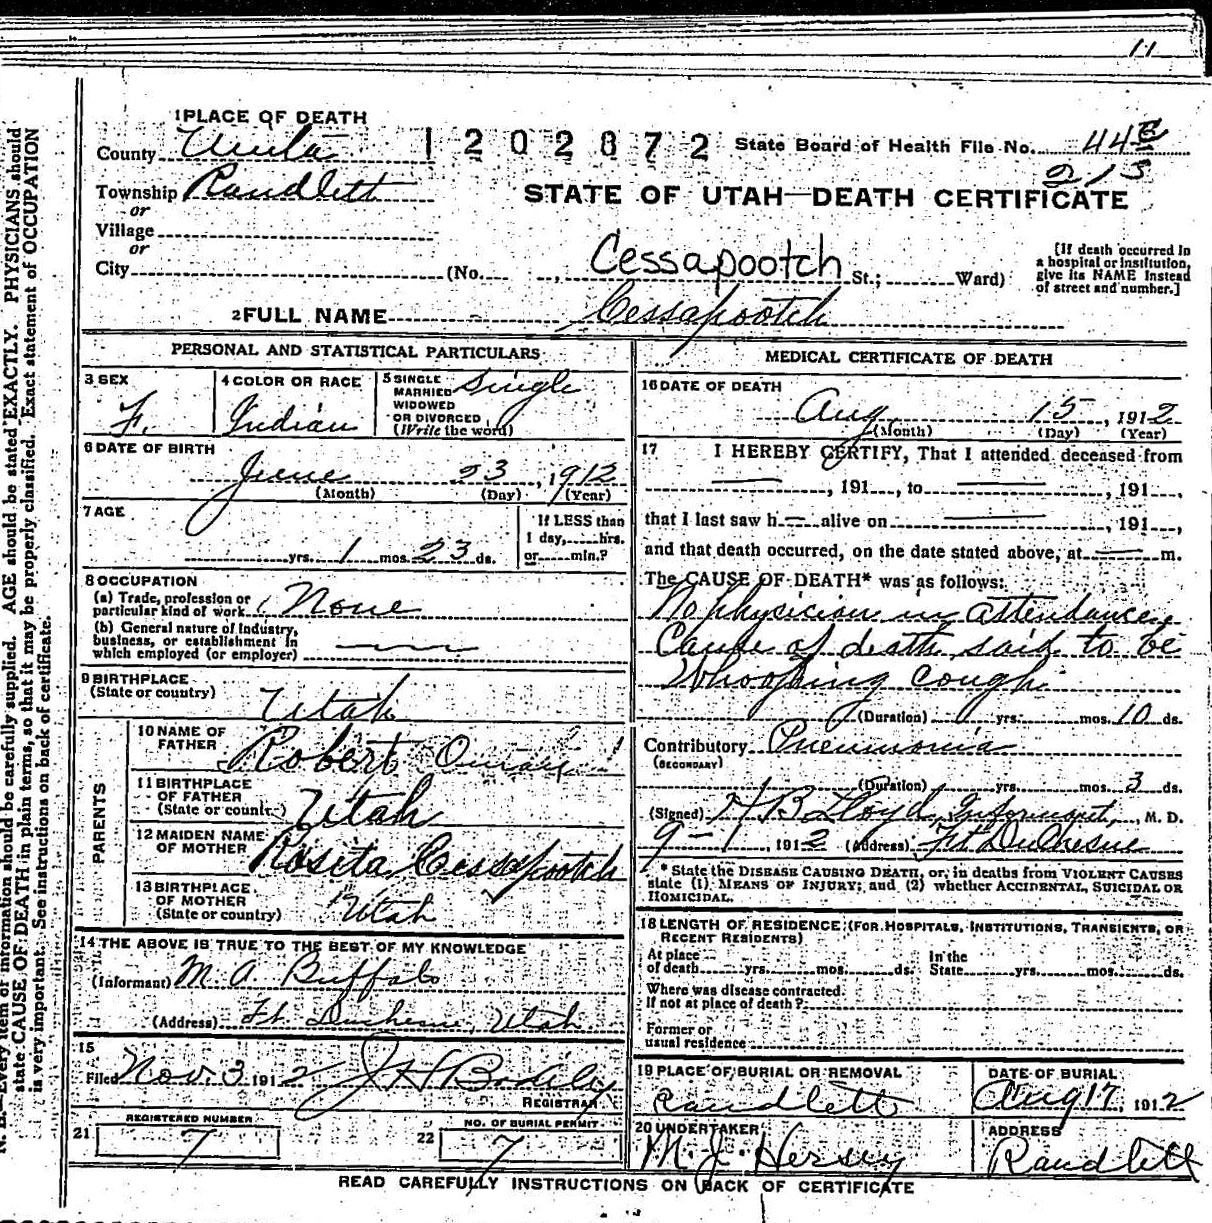 11
1 PLACE OF DEATH
County Uinta 1202872 State Board of Health File No. 44 B
213
Township Randlett
STATE OF UTAH—DEATH CERTIFICATE
or
Village
or
City (No. , Cessapootch St.; Ward)
[If death occurred in
a hospital or institution,
give its NAME instead
of street and number.]
2 FULL NAME Cessapootch
PERSONAL AND STATISTICAL PARTICULARS
3 SEX
F.
4 COLOR OR RACE
Indian
5 SINGLE
MARRIED
WIDOWED
OR DIVORCED
(Write the word)
Single
6 DATE OF BIRTH
June 23, 1912
(Month) (Day) (Year)
7 AGE
yrs. 1 mos. 23 ds.
If LESS than
1 day, hrs.
or min.?
8 OCCUPATION
(a) Trade, profession or
particular kind of work None
(b) General nature of Industry,
business, or establishment in
which employed (or employer)
9 BIRTHPLACE
(State or country)
Utah
PARENTS
10 NAME OF
FATHER
Robert
11 BIRTHPLACE
OF FATHER
(State or country)
Utah
12 MAIDEN NAME
OF MOTHER
Rosita Cessapootch
13 BIRTHPLACE
OF MOTHER
(State or country)
Utah
14 THE ABOVE IS TRUE TO THE BEST OF MY KNOWLEDGE
(Informant) M. A. Buffalo
(Address) Ft. Duchesne, Utah
15
Filed Nov. 3 1912 J H Bodily
REGISTRAR
REGISTERED NUMBER
21 7
NO. OF BURIAL PERMIT
22 7
MEDICAL CERTIFICATE OF DEATH
16 DATE OF DEATH
Aug. 15, 1912
(Month) (Day) (Year)
17 I HEREBY CERTIFY, That I attended deceased from
, 191 , to , 191 ,
that I last saw h alive on , 191 ,
and that death occurred, on the date stated above, at m.
The CAUSE OF DEATH* was as follows:
No physician in attendance,
Cause of death said to be
Whooping Cough.
(Duration) yrs. mos. 10 ds.
Contributory Pneumonia
(SECONDARY)
(Duration) yrs. mos. 3 ds.
(Signed) H B Lloyd, Informant, M. D.
9-1, 1912 (Address) Ft Duchesne
* State the DISEASE CAUSING DEATH, or, in deaths from VIOLENT CAUSES
state (1) MEANS OF INJURY; and (2) whether ACCIDENTAL, SUICIDAL OR
HOMICIDAL.
18 LENGTH OF RESIDENCE (FOR HOSPITALS, INSTITUTIONS, TRANSIENTS, OR
RECENT RESIDENTS)
At place
of death yrs. mos. ds.
In the
State yrs. mos. ds.
Where was disease contracted
If not at place of death?
Former or
usual residence
19 PLACE OF BURIAL OR REMOVAL
Randlett
DATE OF BURIAL
Aug 17, 1912
20 UNDERTAKER
M. J. Hersey
ADDRESS
Randlett
READ CAREFULLY INSTRUCTIONS ON BACK OF CERTIFICATE
N. B.—Every item of information should be carefully supplied. AGE should be stated EXACTLY. PHYSICIANS should
state CAUSE OF DEATH in plain terms, so that it may be properly classified. Exact statement of OCCUPATION
is very important. See instructions on back of certificate.